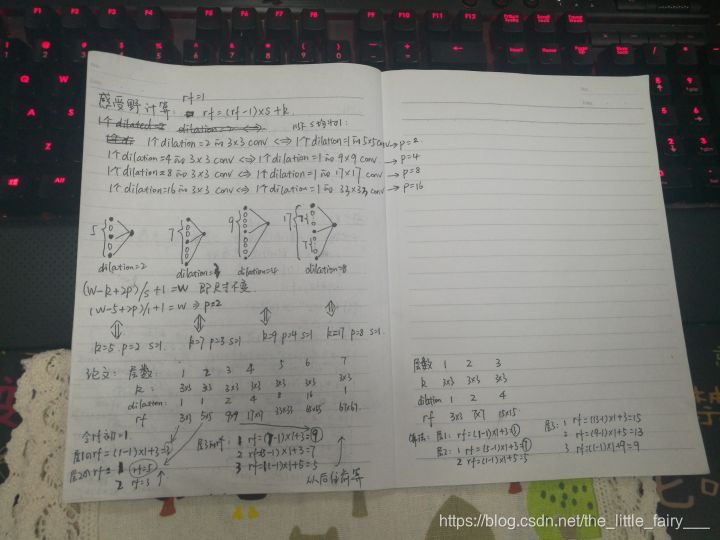 rf=1
感受野计算: rf=(rf-1)×s+k
1个dilation=2的3×3 conv <=> 1个dilation=1的5×5 conv → p=2
1个dilation=4的3×3 conv <=> 1个dilation=1的9×9 conv → p=4
1个dilation=8的3×3 conv <=> 1个dilation=1的17×17 conv → p=8
1个dilation=16的3×3 conv <=> 1个dilation=1的33×33 conv → p=16
5 7 9 17
dilation=2 dilation=3 dilation=4 dilation=8
(W-k+2p)/s+1=W 即尺寸不变
(W-5+2p)/1+1=W => p=2
k=5 p=2 s=1 k=7 p=3 s=1 k=9 p=4 s=1 k=17 p=8 s=1
论文: 层数: 1 2 3 4 5 6 7
k: 3×3 3×3 3×3 3×3 3×3 3×3 3×3
dilation: 1 1 2 4 8 16 1
rf 3×3 5×5 9×9 17×17 33×33 65×65 67×67
层1的rf=(1-1)×1+3=3
层2的rf= 1 rf=5
2 rf=3
2 rf=(3-1)×1+3=7
3 rf=(1-1)×1+5=5
从后往前算
层数 1 2 3
k 3×3 3×3 3×3
dilation 1 2 4
rf 3×3 7×7 15×15
层1: rf=(1-1)×1+3=3
层2: 1 rf=(5-1)×1+3=7
2 rf=(1-1)×1+5=5
层3: 1 rf=(13-1)×1+3=15
2 rf=(9-1)×1+5=13
3 rf=(1-1)×1+9=9
https://blog.csdn.net/the_little_fairy___